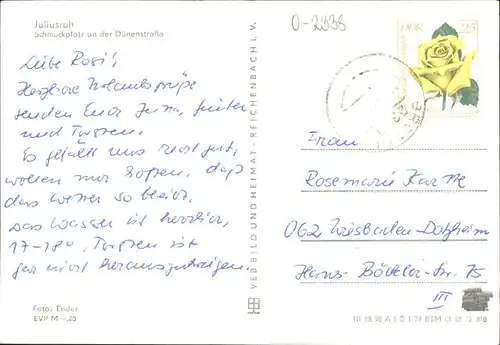 Juliusruh
Schmuckplatz an der Dünenstraße
0-2338
DDR 25
Liebe Rosi!
Herzliche Urlaubsgrüße
senden Euch Jutta, Günter
und Torsten.
Es gefällt uns recht gut,
wollen nur hoffen, daß
das Wetter so bleibt.
Das Wasser ist herrlich,
17-18°. Torsten ist
gar nicht herauszukriegen.
Foto: Ender
EVP M -,25
VEB BILD UND HEIMAT · REICHENBACH I. V.
Frau
Rosemarie
062 Wiesbaden-Dotzheim
Hans-Böckler-Str. 75
III